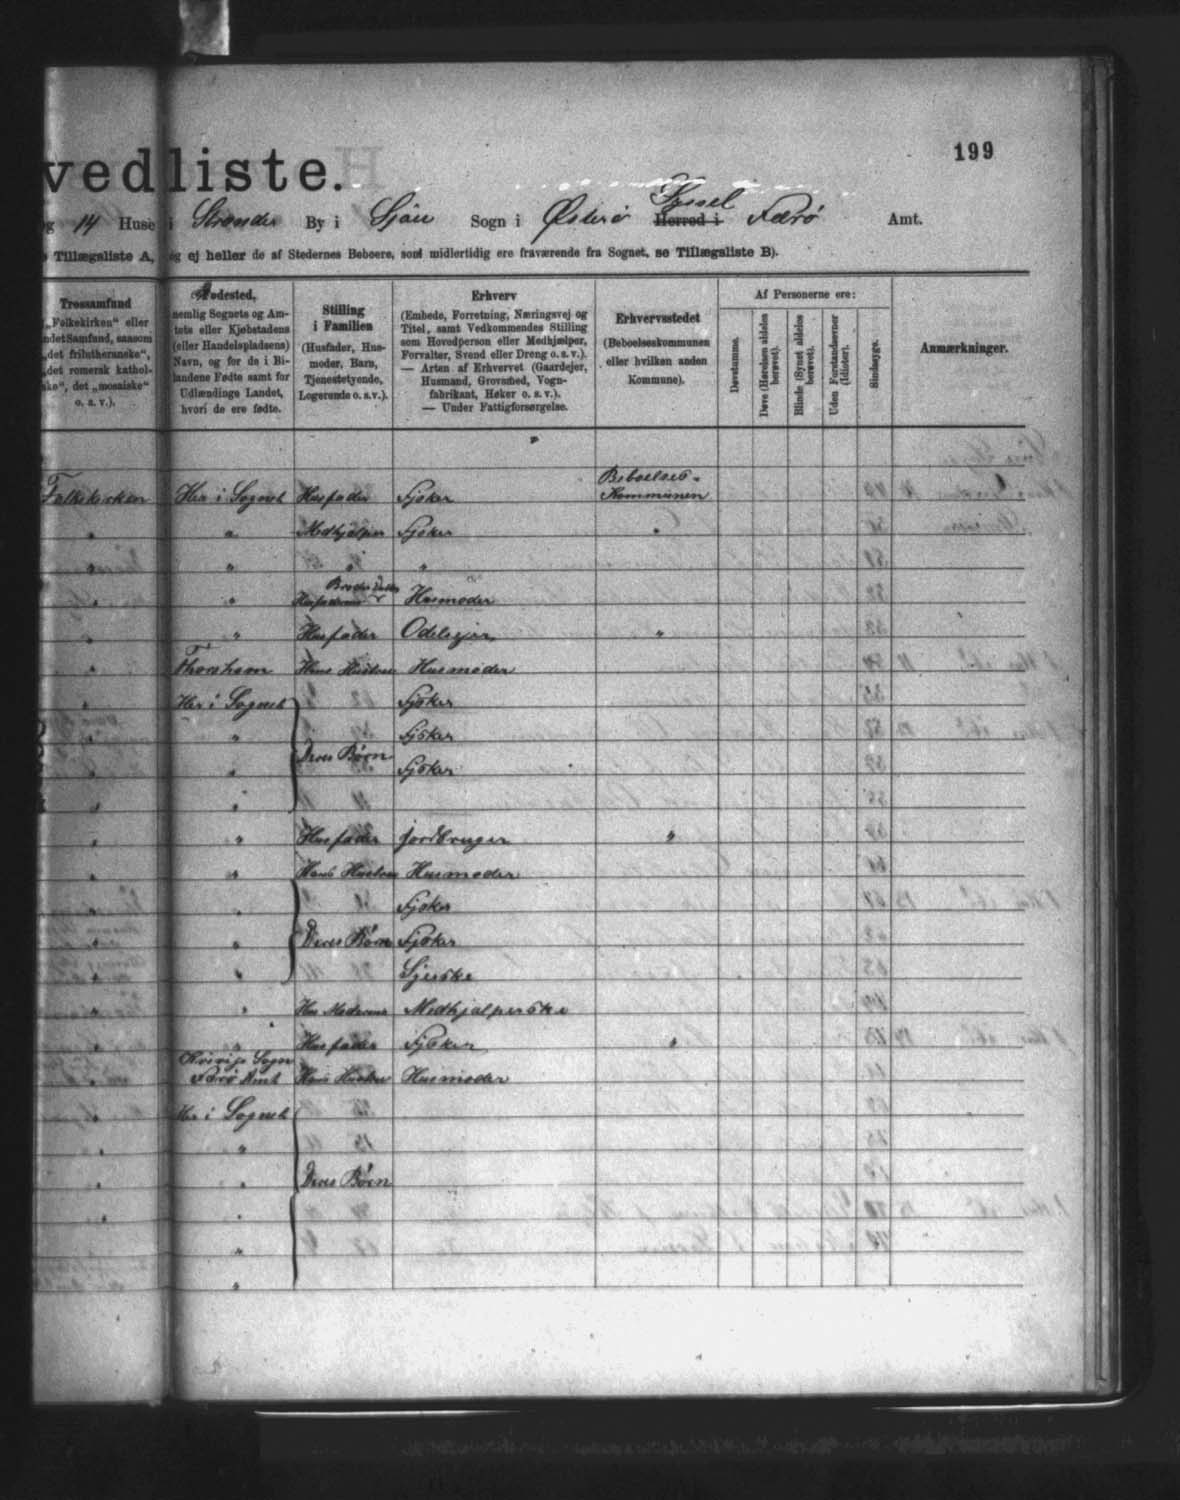 199
vedliste.
og 14 Huse i Strender By i Sjóu Sogn i Østerø Syssel Herred i Færø Amt.
Tillægsliste A, og ej heller de af Stedernes Beboere, som midlertidig ere fraværende fra Sognet, se Tillægsliste B).
Trossamfund
„Folkekirken“ eller
ndet Samfund, saasom
„det frilutheranske“,
„det romersk kathol-
ske“, det „mosaiske“
o. s. v.).
Fødested,
nemlig Sognets og Am-
tets eller Kjøbstadens
(eller Handelspladsens)
Navn, og for de i Bi-
landene Fødte samt for
Udlændinge Landet,
hvori de ere fødte.
Stilling
i Familien
(Husfader, Hus-
moder, Barn,
Tjenestetyende,
Logerende o. s. v.).
Erhverv
(Embede, Forretning, Næringsvej og
Titel, samt Vedkommendes Stilling
som Hovedperson eller Medhjælper,
Forvalter, Svend eller Dreng o. s. v.).
— Arten af Erhvervet (Gaardejer,
Husmand, Grovsmed, Vogn-
fabrikant, Høker o. s. v.).
— Under Fattigforsørgelse.
Erhvervsstedet
(Beboelseskommunen
eller hvilken anden
Kommune).
Af Personerne ere:
Døvstumme.
Døve (Hørelsen aldeles
berøvet).
Blinde (Synet aldeles
berøvet).
Uden Forstandsevner
(Idioter).
Sindssyge.
Anmærkninger.
Folkekirken Her i Sognet Husfader Fisker Beboelses-
Kommunen
" " Medhjælper Fisker "
" " " "
" " Husfaderens Broder Husmoder
" " Husfader Odelsejer "
" Thorshavn Hans Hustru Husmoder
" Her i Sognet Fisker
" " Fisker
" " Deres Børn Fisker
" "
" " Husfader Jordbruger "
" " Hans Hustru Husmoder
" " Fisker
" " Deres Børn Fisker
" "
" " Medhjælperske
" " Husfader Fisker "
" Sogn
Færø Amt Hans Hustru Husmoder
" Her i Sognet
" "
" " Deres Børn
" "
"
"